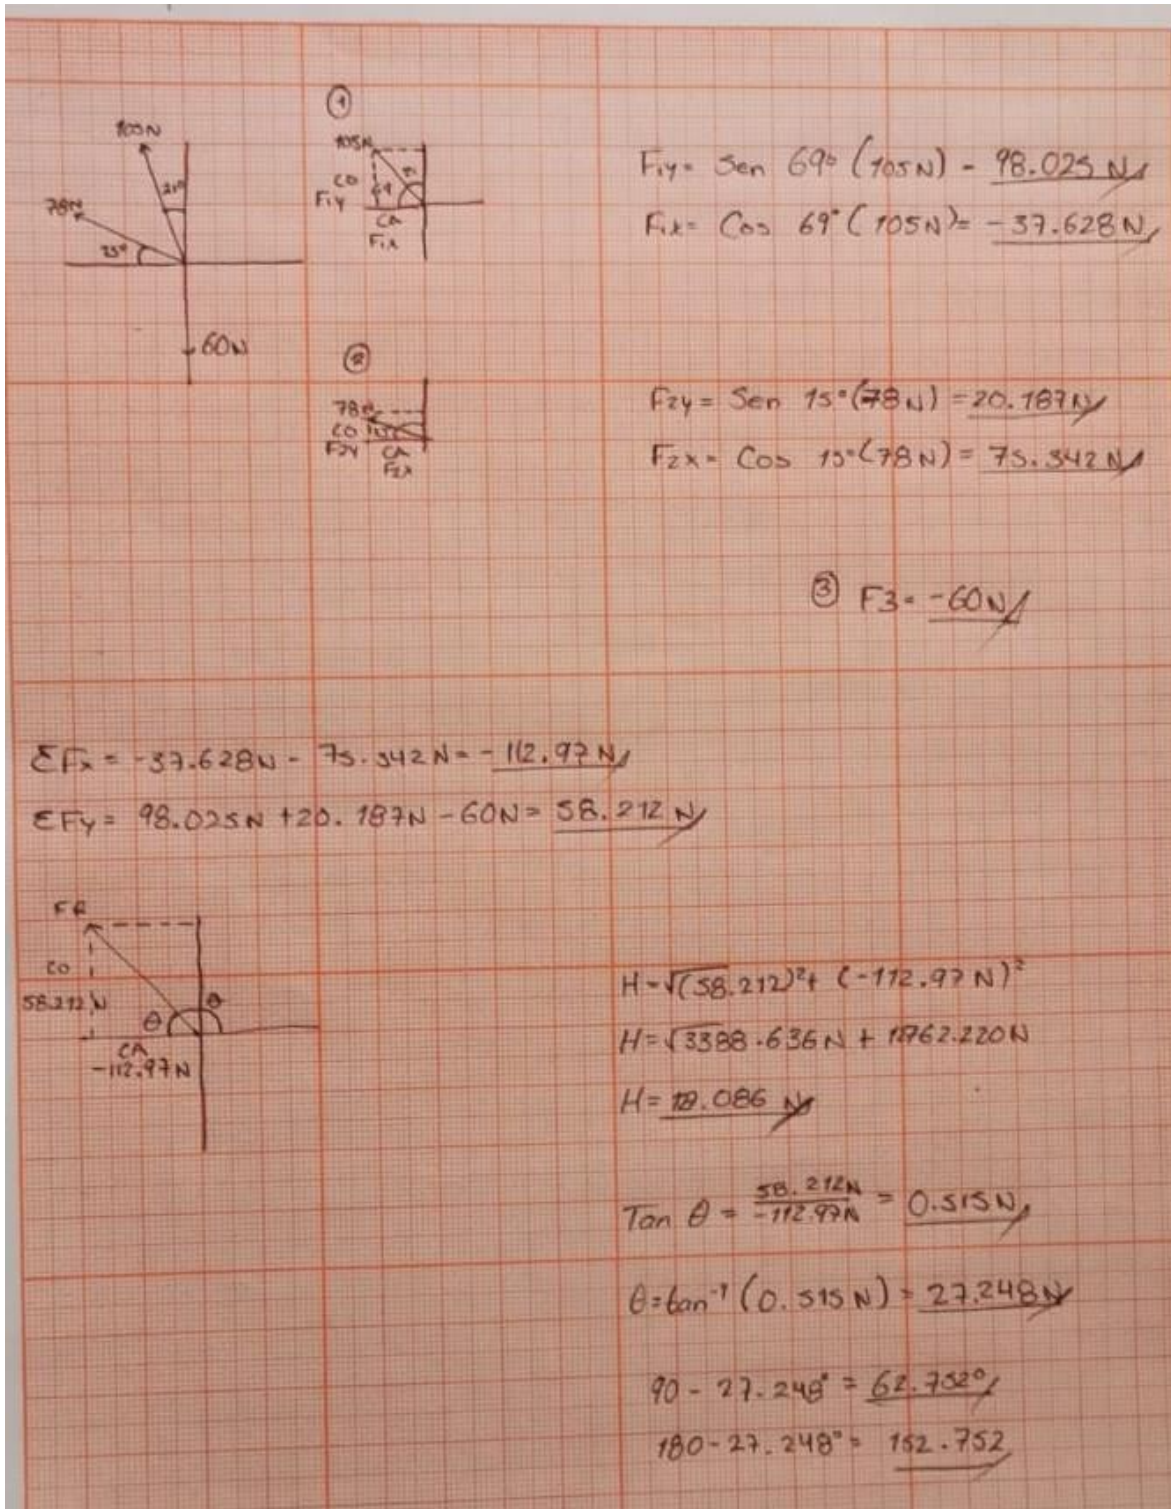 ①
105N
21°
78N
15°
60N
105N
CO
F1y
69
CA
F1x
F1y = Sen 69° (105N) - 98.025 N
F1x = Cos 69° (105N) = -37.628 N
②
78N
CO
F2y
CA
F2x
F2y = Sen 15° (78N) = 20.187 N
F2x = Cos 15° (78N) = 75.342 N
③ F3 = -60N
ΣFx = -37.628N - 75.342N = -112.97 N
ΣFy = 98.025N + 20.187N - 60N = 58.212 N
FR
CO
58.212 N
θ θ
CA
-112.97 N
H = √(58.212)² + (-112.97 N)²
H = √3388.636 N + 12762.220 N
H = .086 N
Tan θ = 58.212N / -112.97N = 0.515 N
θ = tan⁻¹ (0.515 N) = 27.248 N
90 - 27.248° = 62.752°
180 - 27.248° = 152.752